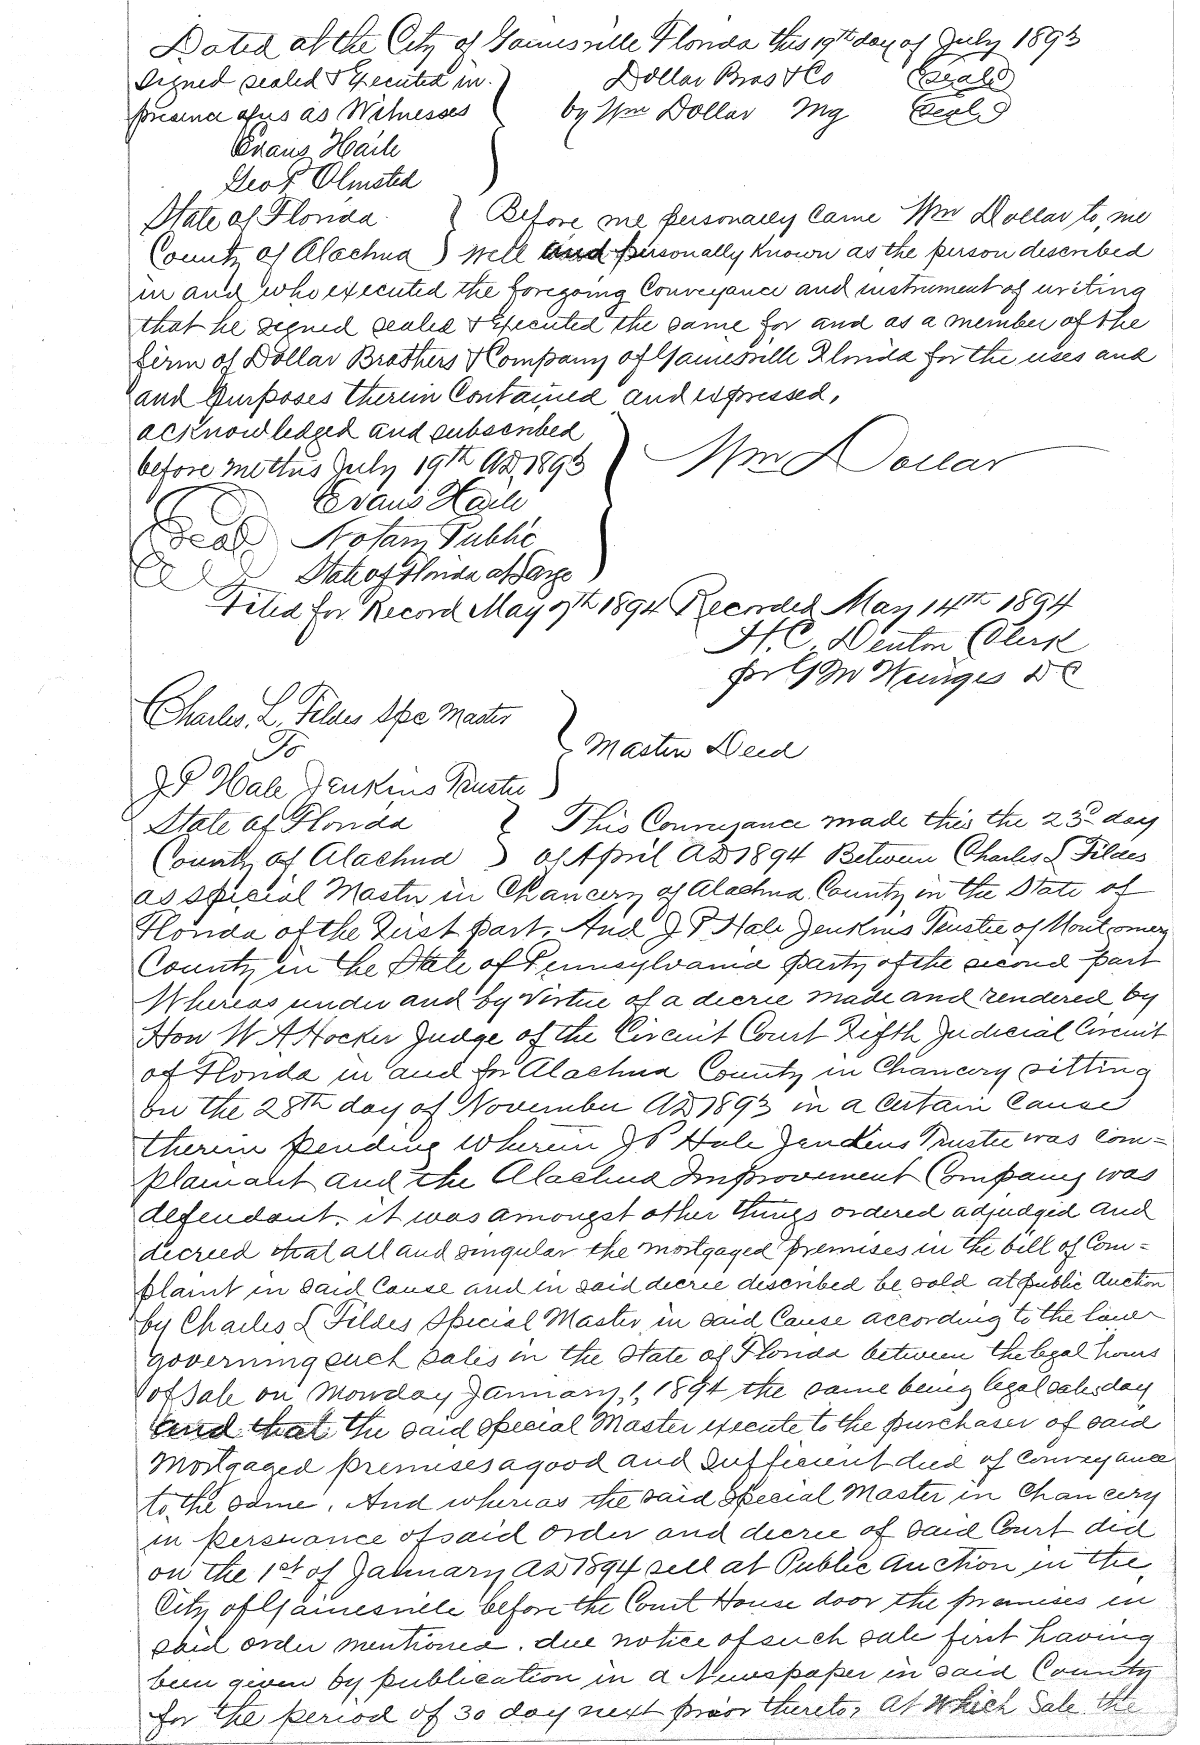 Dated at the City of Gainesville Florida this 19th day of July 1893
Signed sealed & Executed in Dollar Bros & Co (Seal)
presence of us as Witnesses by Wm Dollar Mg (Seal)
Evans Haile
Geo P Olmsted
State of Florida } Before me personally came Wm Dollar to me
County of Alachua } well and personally known as the person described
in and who executed the foregoing Conveyance and instrument of writing
that he signed sealed & Executed the same for and as a member of the
firm of Dollar Brothers & Company of Gainesville Florida for the uses and
and purposes therein Contained and expressed.
acknowledged and subscribed
before me this July 19th AD 1893 Wm Dollar
Evans Haile
Seal Notary Public
State of Florida at Large
Filed for Record May 7th 1894 Recorded May 14th 1894
H. C. Denton Clerk
pr G M DC
Charles. L. Fildes Spc Master
To } Master Deed
J P Hale Jenkins Trustee
State of Florida } This Conveyance made this the 23d day
County of Alachua } of April AD 1894 Between Charles L Fildes
as special Master in Chancery of Alachua County in the State of
Florida of the First part. And J P Hale Jenkins Trustee of Montgomery
County in the State of Pennsylvania party of the second part
Whereas under and by virtue of a decree made and rendered by
Hon W A Hocker Judge of the Circuit Court Fifth Judicial Circuit
of Florida in and for Alachua County in Chancery sitting
on the 28th day of November AD 1893 in a certain Cause
therein pending wherein J P Hale Jenkins Trustee was com=
plainant and the Alachua Improvement Company was
defendant. it was amongst other things ordered adjudged and
decreed that all and singular the mortgaged premises in the bill of Com=
plaint in said Cause and in said decree described be sold at public Auction
by Charles L Fildes Special Master in said Cause according to the laws
governing such sales in the State of Florida between the legal hours
of sale on Monday January 1, 1894 the same being legal salesday
and that the said special Master execute to the purchaser of said
Mortgaged premises a good and sufficient deed of conveyance
to the same. And whereas the said special Master in Chancery
in persuance of said order and decree of said Court did
on the 1st of January AD 1894 sell at Public Auction in the
City of Gainesville before the Court House door the premises in
said order mentioned. due notice of such sale first having
been given by publication in a Newspaper in said County
for the period of 30 day next prior thereto, at which Sale the